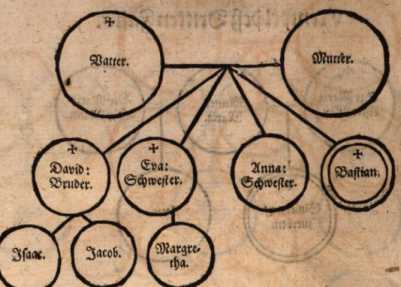 Vatter.
Mutter.
David:
Bruder.
Eva:
Schwester.
Anna:
Schwester.
Bastian.
Isaac.
Jacob.
Margre-
tha.